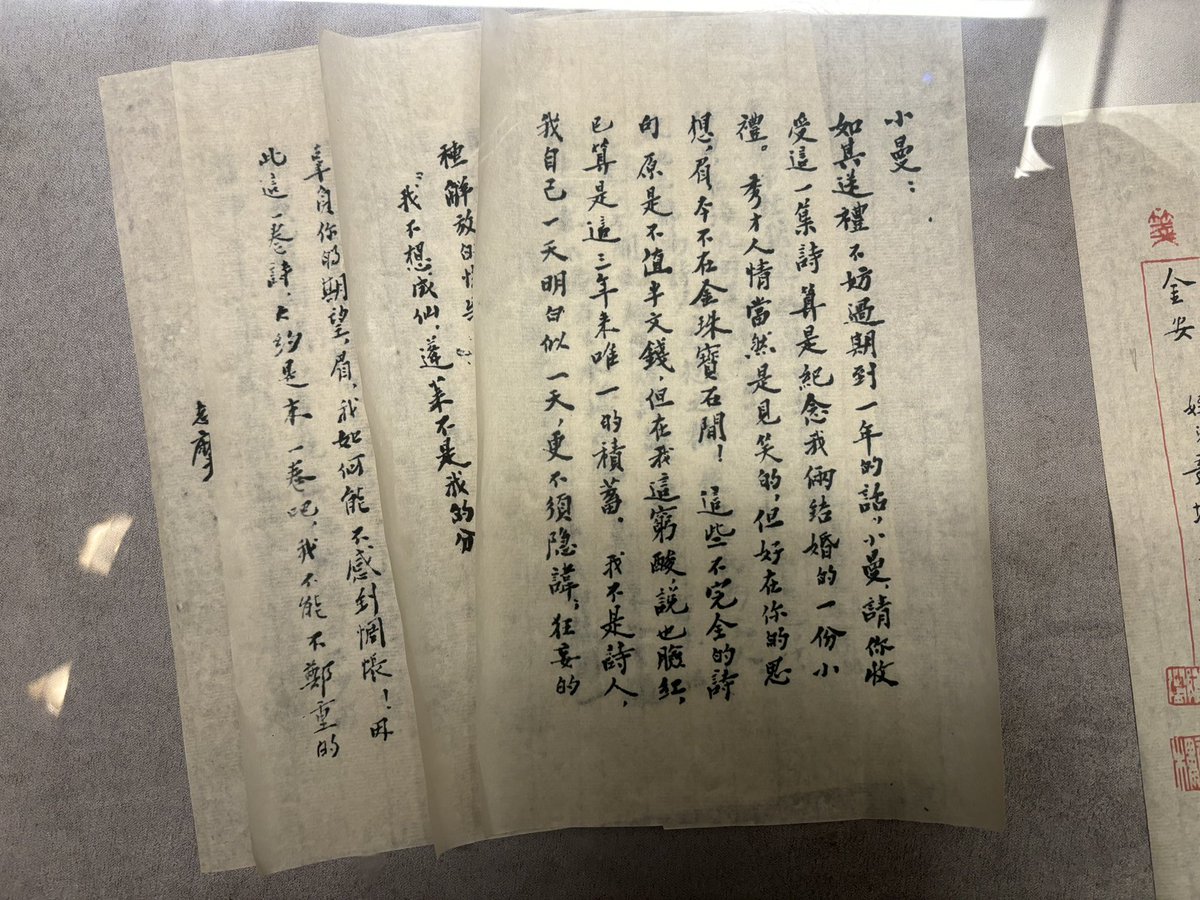 小曼：
如其送禮不妨過期到一年的話，小曼，請你收
受這一集詩算是紀念我倆結婚的一份小
禮。秀才人情當然是見笑的，但好在你的思
想，眉，本不在金珠寶石間！這些不完全的詩
句原是不值半文錢，但在我這窮酸，說也臉紅，
已算是這三年來唯一的積蓄。我不是詩人，
我自己一天明白似一天，更不須隐諱；狂妄的
種解放的快樂
“我不想成仙，蓬萊不是我的分
辜負你的期望，眉，我如何能不感到惆悵！因
此這一卷詩，大約是末一卷吧，我不能不鄭重的
志摩
金安